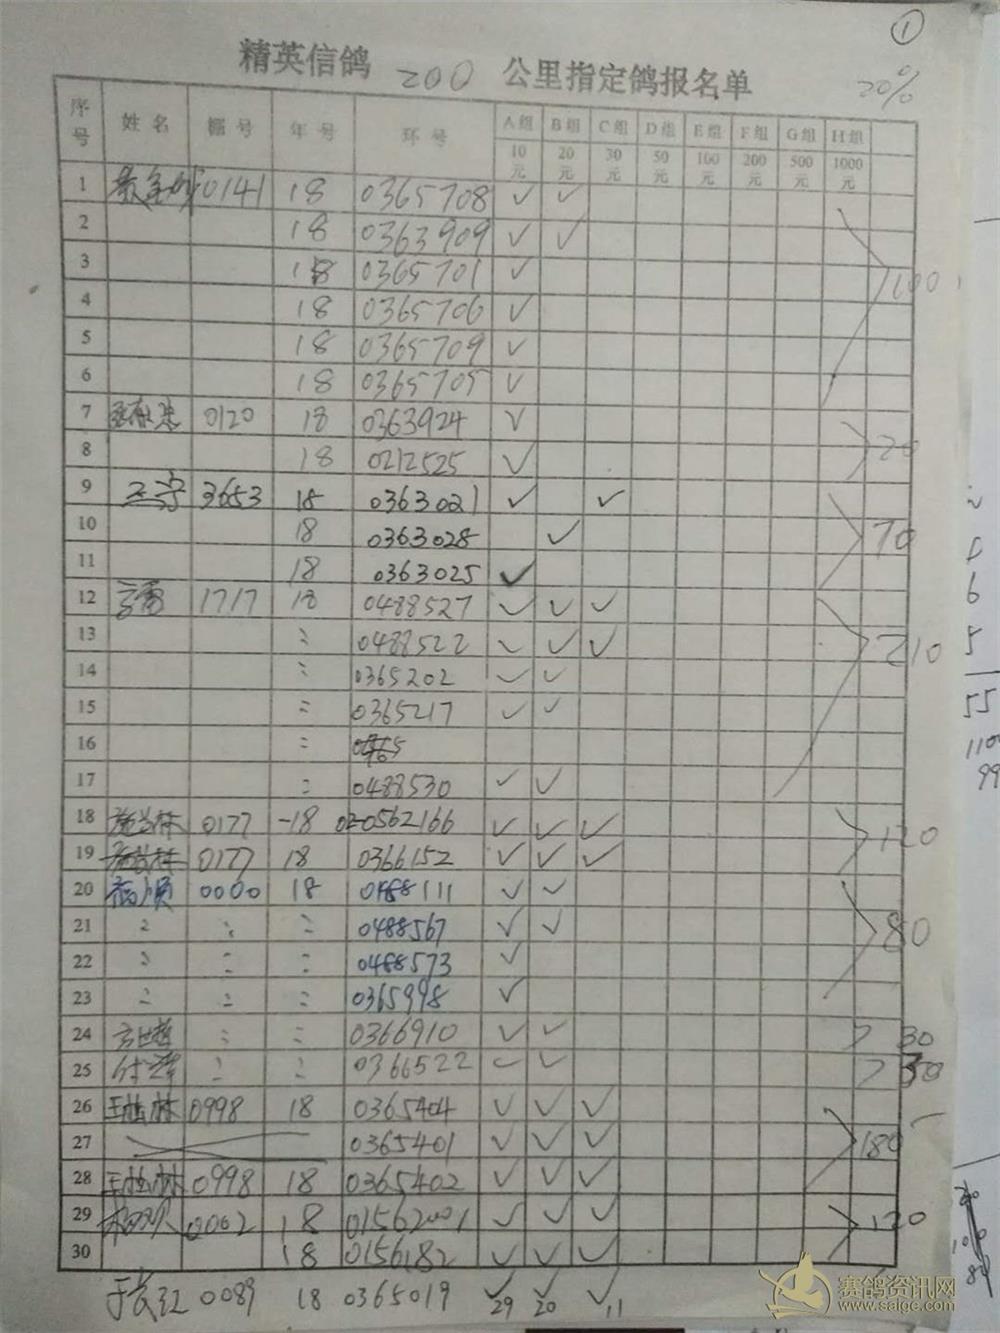 ①
精英信鸽 200 公里指定鸽报名单 20%
序号 姓名 棚号 年号 环号 A组 B组 C组 D组 E组 F组 G组 H组
10元 20元 30元 50元 100元 200元 500元 1000元
1 0141 18 0365708 ✓ ✓
2 18 0363909 ✓ ✓
3 18 0365701 ✓ 100
4 18 0365706 ✓
5 18 0365709 ✓
6 18 0365705 ✓
7 0120 18 0363924 ✓
8 18 0212525 ✓ 20
9 王亭 3653 18 0363021 ✓ ✓
10 18 0363028 ✓ 70
11 18 0363025 ✓
12 1717 18 0488527 ✓ ✓ ✓
13 〃 0488522 ✓ ✓ ✓ 210
14 〃 0365202 ✓ ✓
15 〃 0365217 ✓ ✓
16 〃
17 〃 0488530 ✓ ✓
18 0177 -18 020562166 ✓ ✓ ✓ 120
19 0177 18 0366152 ✓ ✓ ✓
20 0000 18 0488111 ✓ ✓
21 〃 〃 〃 0488567 ✓ ✓ 80
22 〃 〃 〃 0488573 ✓
23 〃 〃 〃 0365998 ✓
24 〃 〃 0366910 ✓ ✓ 30
25 付 〃 〃 0366522 ✓ ✓ 30
26 王 林 0998 18 0365404 ✓ ✓ ✓
27 0365401 ✓ ✓ ✓ 180
28 王 林 0998 18 0365402 ✓ ✓ ✓
29 0062 18 01562001 ✓ ✓ ✓ 120
30 18 0156182 ✓ ✓ ✓
于长江 0089 18 0365019 ✓29 ✓20 ✓11
赛鸽资讯网
www.saige.com